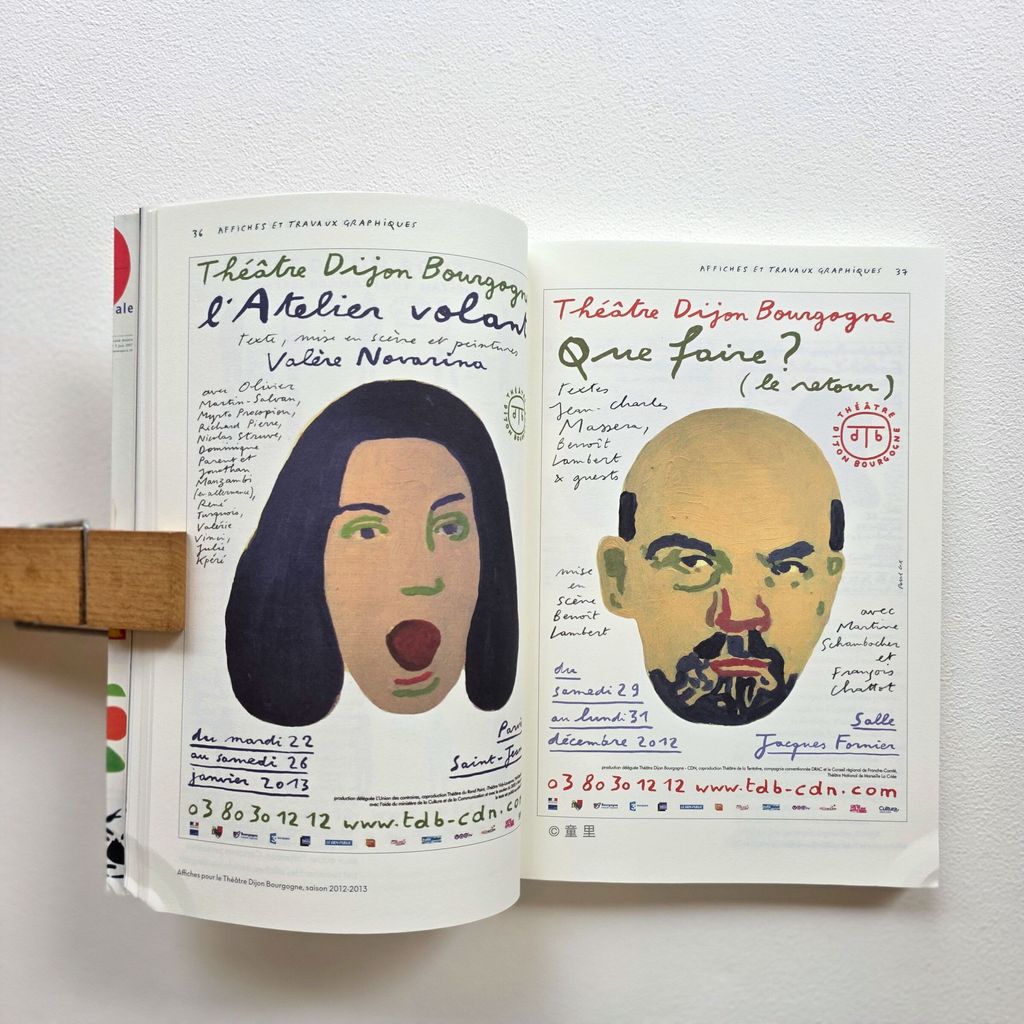 36 AFFICHES ET TRAVAUX GRAPHIQUES
Théâtre Dijon Bourgogn
l'Atelier volant
texte, mise en scène et peintures
Valère Novarina
avec Olivier
Martin-Salvan,
Myrto Procopiou,
Richard Pierre,
Nicolas Struve,
Dominique
Parent et
Jonathan
Manzambi
(en alternance),
René
Turquois,
Valérie
Vinci,
Julie
Kpéré
THÉÂTRE
DIJON BOURG
du mardi 22
au samedi 26
janvier 2013
Parvi
Saint-Jea
production déléguée L'Union des contraires, coproduction Théâtre du Rond Point,
avec l'aide du ministère de la Culture et de la Communication
03 80 30 12 12 www.tdb-cdn.co
LE BIEN PUBLIC
Affiches pour le Théâtre Dijon Bourgogne, saison 2012-2013
ale
AFFICHES ET TRAVAUX GRAPHIQUES 37
Théâtre Dijon Bourgogne
Que faire ?
(le retour)
textes
Jean-Charles
Massera,
Benoît
Lambert
& guests
THÉÂTRE
dTb
DIJON BOURGOGNE
mise
en
scène
Benoît
Lambert
avec
Martine
Schambacher
et
François
Chattot
du
samedi 29
au lundi 31
décembre 2012
Salle
Jacques Fornier
production déléguée Théâtre Dijon Bourgogne - CDN, coproduction Théâtre de la Tentative, compagnie conventionnée DRAC et le Conseil régional de Franche-Comté,
Théâtre National de Marseille La Criée
03 80 30 12 12 www.tdb-cdn.com
© 童里